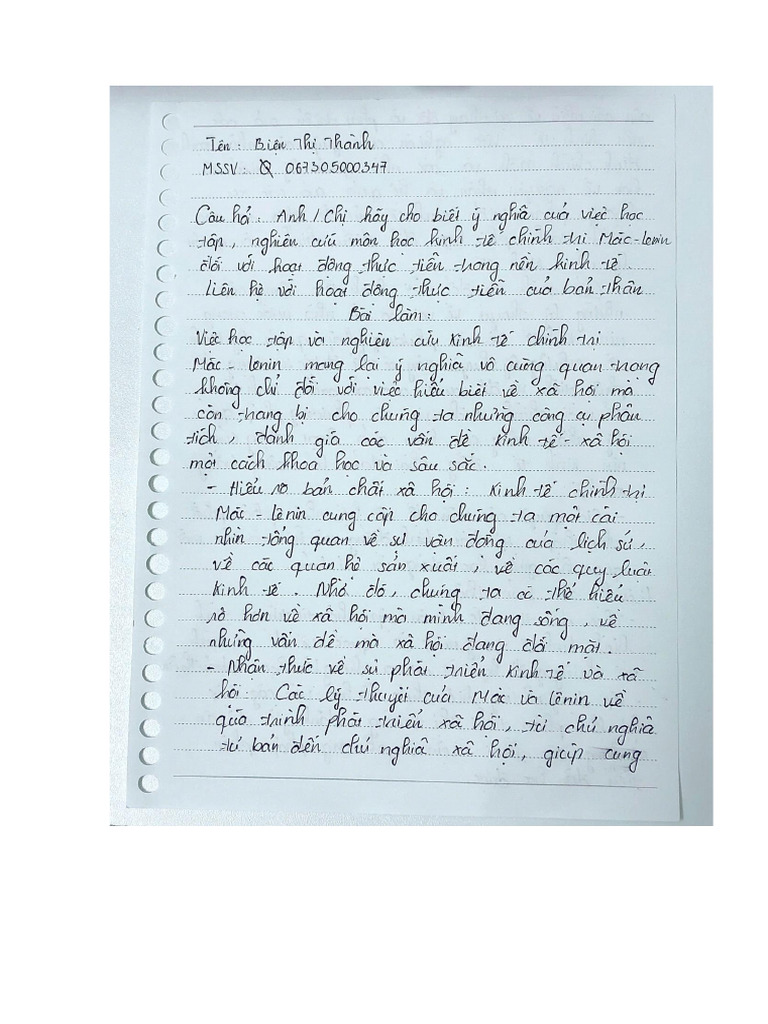 Tên : Biện Thị Thành
MSSV : 067305000347
Câu hỏi : Anh / Chị hãy cho biết ý nghĩa của việc học
tập, nghiên cứu môn học kinh tế chính trị Mác - Lenin
đối với hoạt động thực tiễn trong nền kinh tế.
Liên hệ với hoạt động thực tiễn của bản thân
Bài làm :
Việc học tập và nghiên cứu kinh tế chính trị
Mác - Lenin mang lại ý nghĩa vô cùng quan trọng
không chỉ đối với việc hiểu biết về xã hội mà
còn trang bị cho chúng ta những công cụ phân
tích, đánh giá các vấn đề kinh tế - xã hội
một cách khoa học và sâu sắc.
- Hiểu rõ bản chất xã hội : Kinh tế chính trị
Mác - Lênin cung cấp cho chúng ta một cái
nhìn tổng quan về sự vận động của lịch sử,
về các quan hệ sản xuất, về các quy luật
kinh tế. Nhờ đó, chúng ta có thể hiểu
rõ hơn về xã hội mà mình đang sống, về
những vấn đề mà xã hội đang đối mặt.
- Nhận thức về sự phát triển kinh tế và xã
hội : Các lý thuyết của Mác và Lênin về
quá trình phát triển xã hội, từ chủ nghĩa
tư bản đến chủ nghĩa xã hội, giúp cung